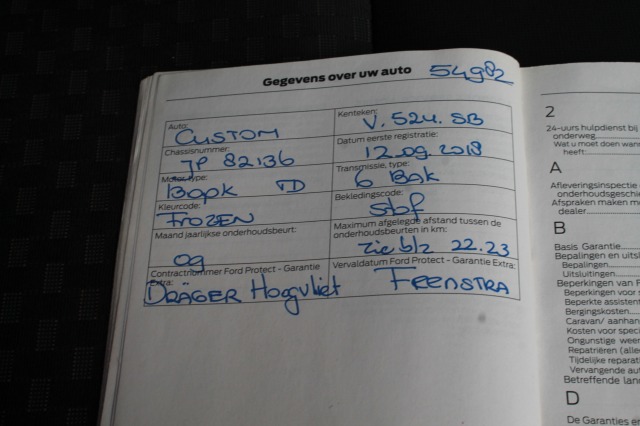 Gegevens over uw auto 54982
Auto: CUSTOM
Kenteken: V. 524. SB
Chassisnummer: JP 82136
Datum eerste registratie: 12.09.2018
Motor, type: 130pk TD
Transmissie, type: 6 Bak
Kleurcode: FROZEN
Bekledingscode: Stof
Maand jaarlijkse onderhoudsbeurt: 09
Maximum afgelegde afstand tussen de
onderhoudsbeurten in km: Zie blz 22.23
Contractnommer Ford Protect - Garantie
Extra: DRÄGER Hoogvliet
Vervaldatum Ford Protect - Garantie Extra:
FEENSTRA
2
24-uurs hulpdienst bij
onderweg
Wat u moet doen wann
heeft:
A
Afleveringsinspectie
onderhoudsgeschie
Afspraken maken me
dealer
B
Basis Garantie
Bepalingen en uitsl
Bepalingen
Uitsluitingen
Beperkingen van F
Beperkingen voor s
Beperkte assistent
Bergingskosten
Caravan/ aanhan
Kosten voor speci
Ongunstige weer
Repatriëren (alle
Tijdelijke reparati
Vervangende aut
Betreffende lan
D
De Garanties en